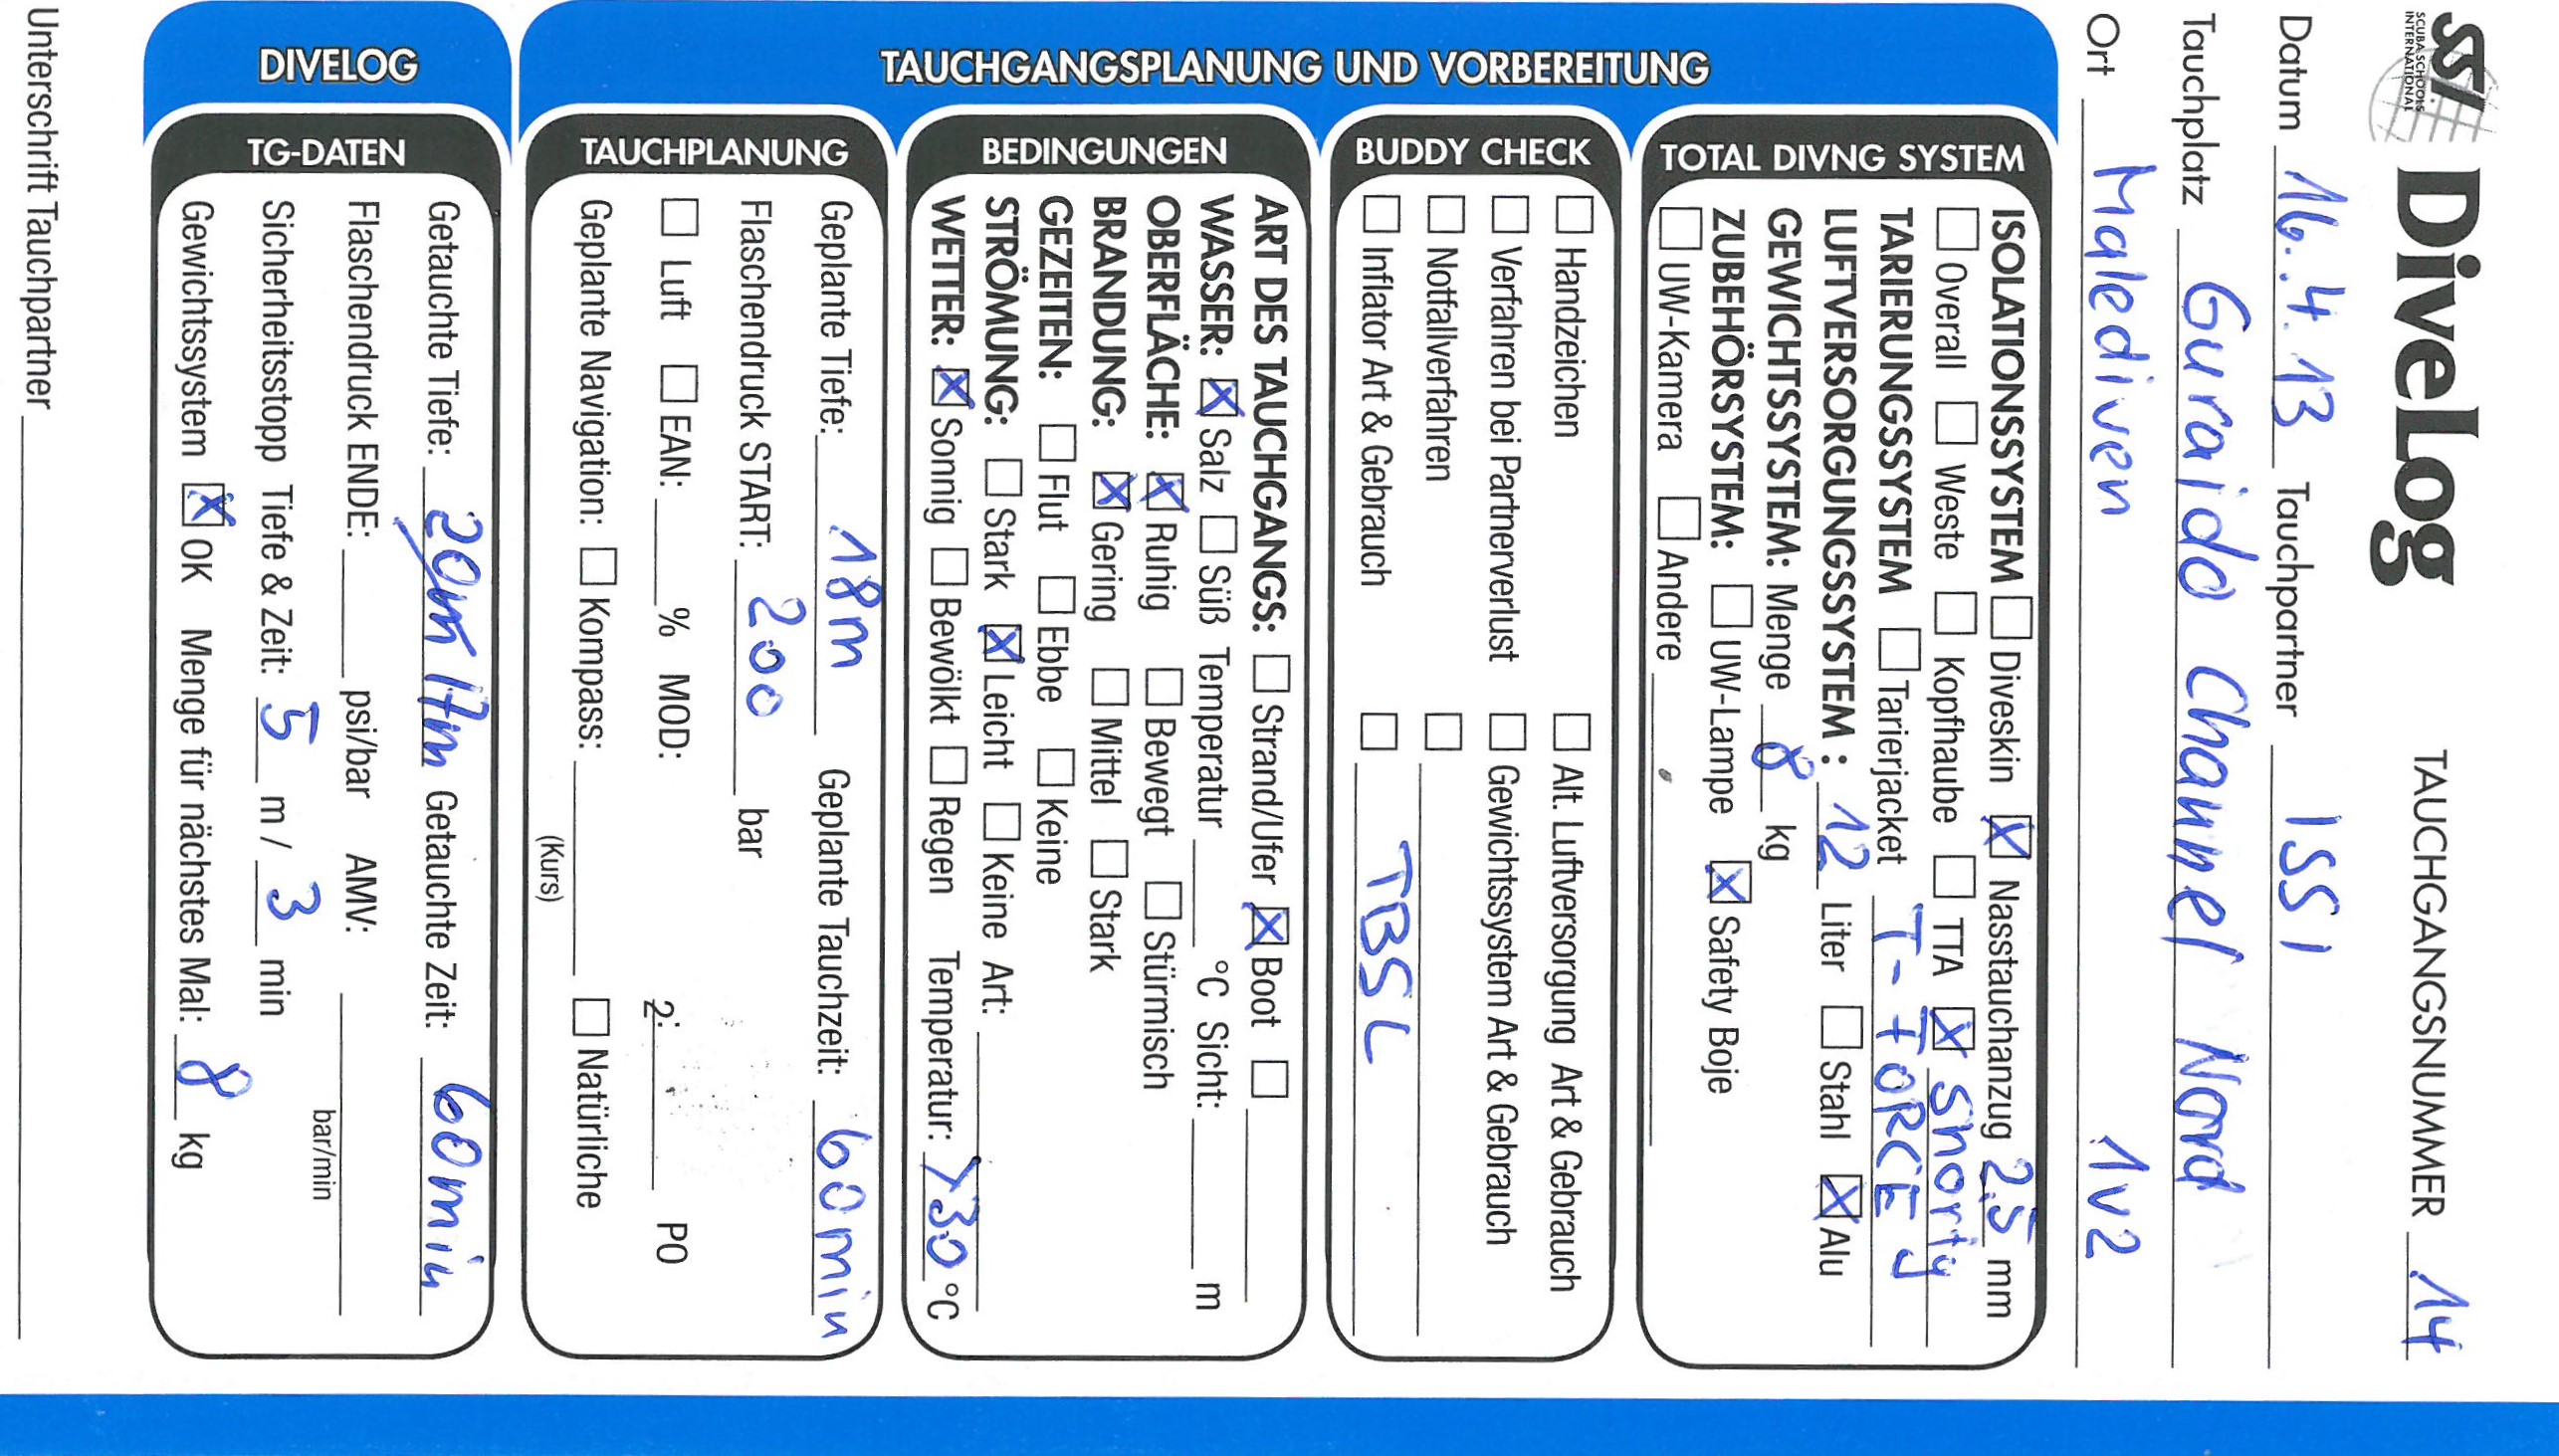 SSI
SCUBA SCHOOLS
INTERNATIONAL
DiveLog
TAUCHGANGSNUMMER 14
Datum 16.4.13 Tauchpartner ISSI
Tauchplatz Guraido Channel Nord
Ort Malediven 1v2
TAUCHGANGSPLANUNG UND VORBEREITUNG
TOTAL DIVNG SYSTEM
ISOLATIONSSYSTEM ☐ Diveskin ☒ Nasstauchanzug 2,5 mm
☐ Overall ☐ Weste ☐ Kopfhaube ☐ TTA ☒ Shorty
TARIERUNGSSYSTEM ☐ Tarierjacket T-FORCE
LUFTVERSORGUNGSSYSTEM : 12 Liter ☐ Stahl ☒ Alu
GEWICHTSSYSTEM: Menge 8 kg
ZUBEHÖRSYSTEM: ☐ UW-Lampe ☒ Safety Boje
☐ UW-Kamera ☐ Andere
BUDDY CHECK
☐ Handzeichen ☐ Alt. Luftversorgung Art & Gebrauch
☐ Verfahren bei Partnerverlust ☐ Gewichtssystem Art & Gebrauch
☐ Notfallverfahren ☐
☐ Inflator Art & Gebrauch ☐ TBSL
BEDINGUNGEN
ART DES TAUCHGANGS: ☐ Strand/Ufer ☒ Boot ☐
WASSER: ☒ Salz ☐ Süß Temperatur °C Sicht: m
OBERFLÄCHE: ☒ Ruhig ☐ Bewegt ☐ Stürmisch
BRANDUNG: ☒ Gering ☐ Mittel ☐ Stark
GEZEITEN: ☐ Flut ☐ Ebbe ☐ Keine
STRÖMUNG: ☐ Stark ☒ Leicht ☐ Keine Art:
WETTER: ☒ Sonnig ☐ Bewölkt ☐ Regen Temperatur: >30 °C
TAUCHPLANUNG
Geplante Tiefe: 18m Geplante Tauchzeit: 60min
Flaschendruck START: 200 bar
☐ Luft ☐ EAN: % MOD: 2: PO
Geplante Navigation: ☐ Kompass: ☐ Natürliche
(Kurs)
DIVELOG
TG-DATEN
Getauchte Tiefe: 20m 17m Getauchte Zeit: 60min
Flaschendruck ENDE: psi/bar AMV: bar/min
Sicherheitsstopp Tiefe & Zeit: 5 m / 3 min
Gewichtssystem ☒ OK Menge für nächstes Mal: 8 kg
Unterschrift Tauchpartner